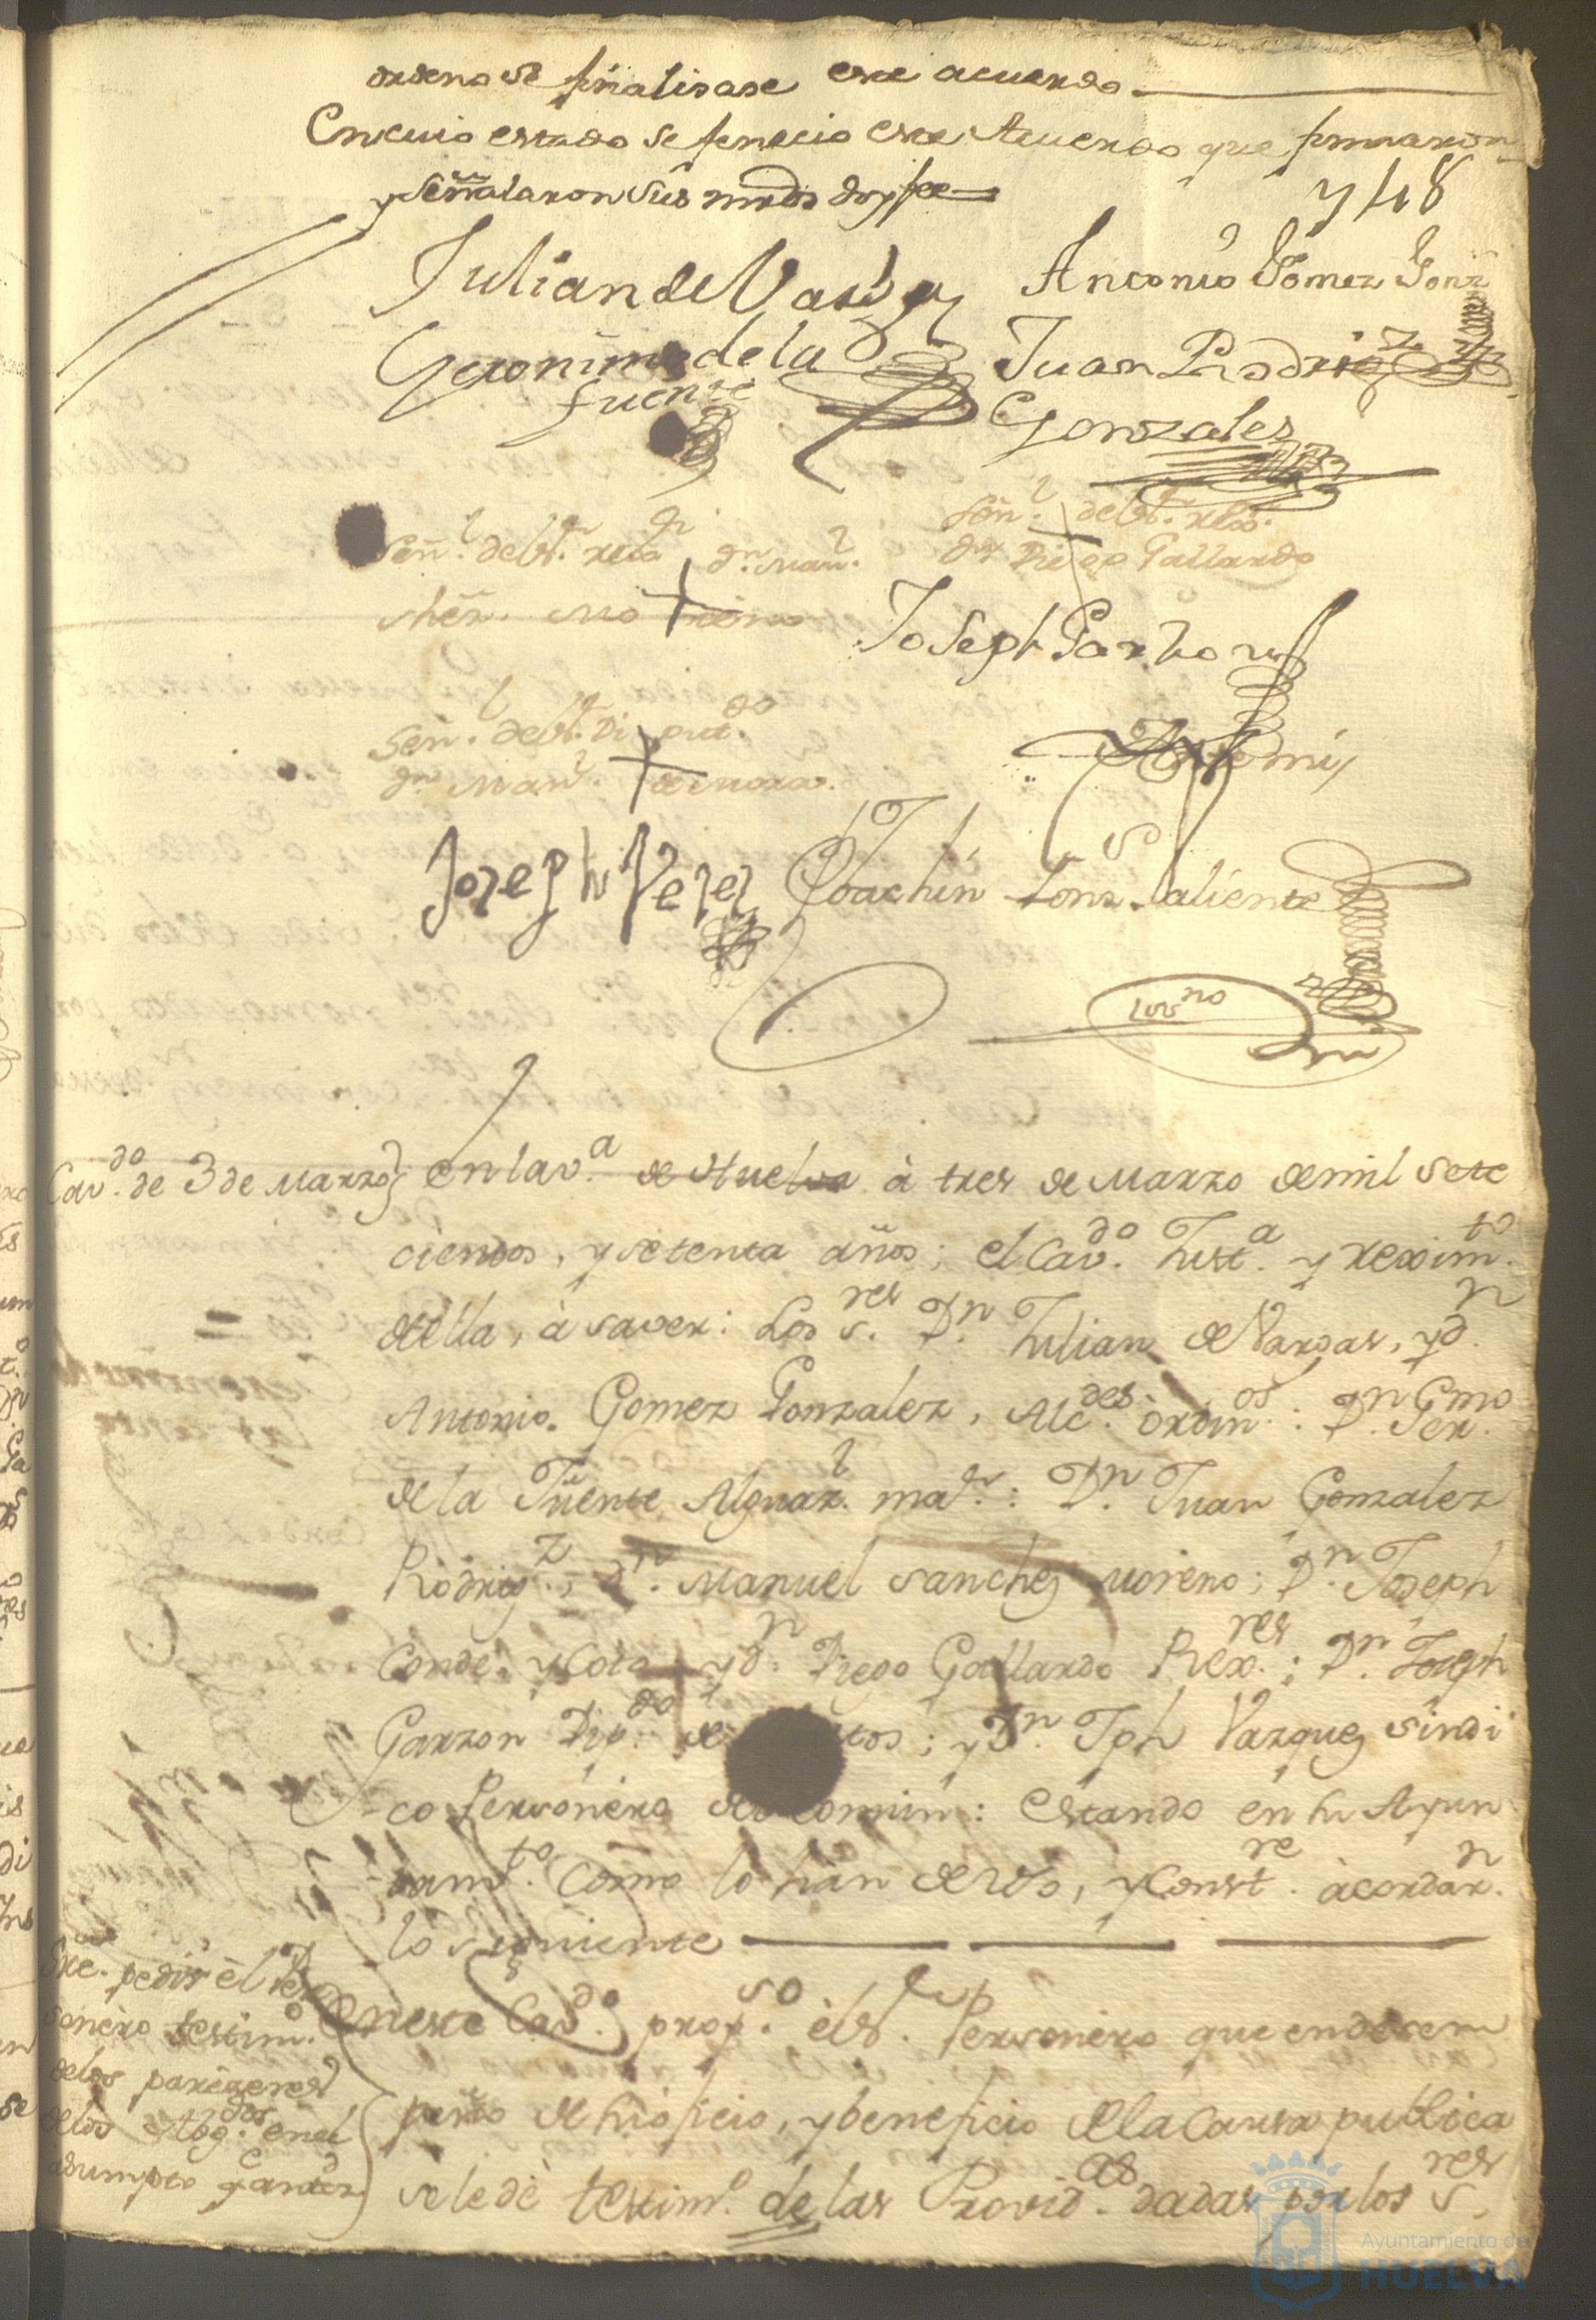 ordeno se finalisase este acuerdo
En cuio estado se fenecio este Acuerdo que firmaron
y señalaron sus mrds doy fee
748
Julian de Vargas
Antonio Gomez Gonz
Geronimo de la
fuente
Juan Rodrigz
Gonzales
Señl. del Sr. rexor dn. Manl.
Señl. del Sr. rexor.
dn Diego Gallardo
Sanchez Moreno
Joseph Garzon
Señl. del Sr. Diputdo
dn Manl. de Mora.
Ante mi
Joseph Perez
Joachin Gonz Valiente
Cavdo. de 3 de Marzo
en la va. de Huelva à tres de Marzo de mil sete
cientos, y setenta años; el Cavdo. Justa. y reximto.
de ella, à saver: Los Sres. Dn. Julian de Vargas, y dn.
Antonio Gomez Gonzalez, Alcdes. ordinos.: Dn. Germo.
de la Fuente Alguazl. mar.: Dn. Juan Gonzalez
Rodrigz., Dn. Manuel Sanchez Moreno; Dn. Joseph
Conde, y Cota y dn. Diego Gallardo Rexres.; Dn. Joseph
Garzon Dipdo. de tos; y Dn. Jph Vazquez sindi
co Personero del Comun: Estando en su Ayun
tamto. como lo han de uso, y Constre. acordarn.
lo siguiente
Sre. pedir el Per
sonero testimo.
de los pareceres
de los Abogdos. en el
asumpto
En este Cavdo. propso. el Sr. Personero que en desem
peño de su oficio, y beneficio de la Causa publica
se le dè testimo. de las Providas. dadas por los Sres.
Ayuntamiento de
HUELVA